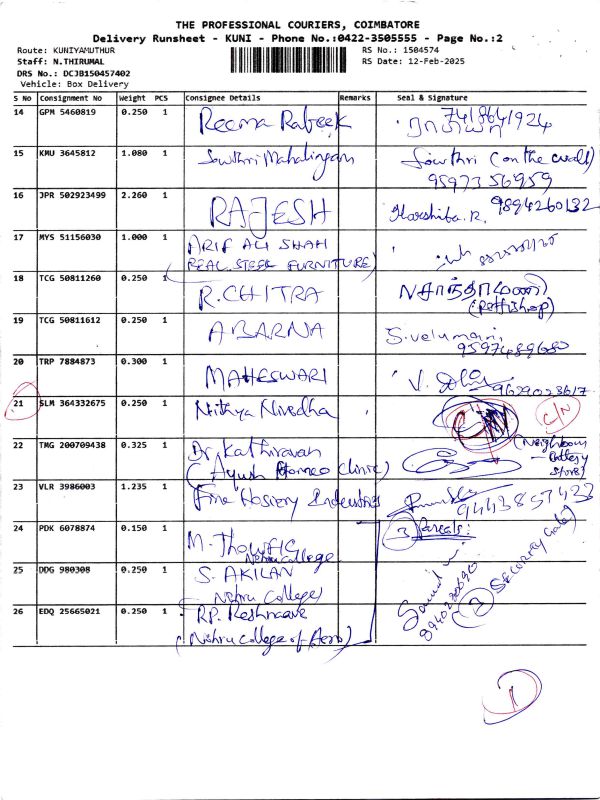 THE PROFESSIONAL COURIERS, COIMBATORE
Delivery Runsheet - KUNI - Phone No.:0422-3505555 - Page No.:2
Route: KUNIYAMUTHUR RS No.: 1504574
Staff: N.THIRUMAL RS Date: 12-Feb-2025
DRS No.: DCJB150457402
Vehicle: Box Delivery
S No Consignment No Weight PCS Consignee Details Remarks Seal & Signature
14 GPM 5460819 0.250 1 Reema Rafeek 7418641924
15 KMU 3645812 1.080 1 Sowthri Mahalingam Sowthri (on the
9597356959
16 JPR 502923499 2.260 1 RAJESH Harshiba.R. 9894260132
17 MYS 51156030 1.000 1 ARIF ALI SHAH
(REAL STEEL FURNITURE)
18 TCG 50811260 0.250 1 R.CHITRA
19 TCG 50811612 0.250 1 ABARNA S.velumani
9597489680
20 TRP 7884873 0.300 1 MAHESWARI V. 9629023617
21 SLM 364332675 0.250 1 Nithya Nivedha C/N C/N
22 TMG 200709438 0.325 1 Dr Kathiravan (Neighbour
(Ayush Homeo Clinic) Battery
Store)
23 VLR 3986003 1.235 1 Fine Hosiery Industries 9443857423
24 PDK 6078874 0.150 1 M. Thowfic 3 Parcels:
Nehru College
25 DDG 980308 0.250 1 S. AKILAN
Nehru College
26 EDQ 25665021 0.250 1 RP. 8940280690
(Nehru College of Aero) SECURITY Gate)
1